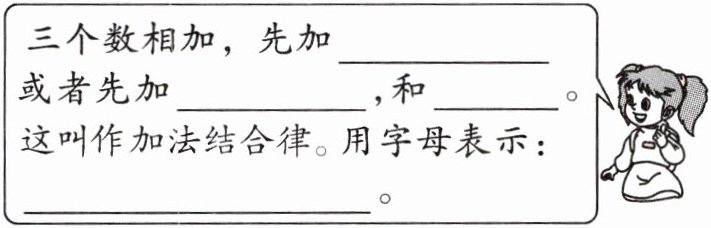 三个数相加，先加__________
或者先加__________，和__________。
这叫作加法结合律。用字母表示：
__________。